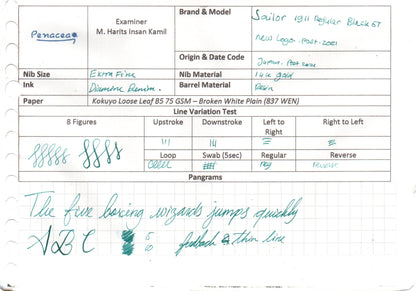 Penacea
Examiner
M. Harits Insan Kamil
Brand & Model
Sailor 1911 Regular Black GT
New Logo. Post-2021
Origin & Date Code
Japan. Post
Nib Size
Extra Fine
Nib Material
14K Gold
Ink
Diamine Denim
Barrel Material
Resin
Paper
Kokuyo Loose Leaf B5 75 GSM – Broken White Plain (837 WEN)
Line Variation Test
8 Figures
Upstroke
Downstroke
Left to Right
Right to Left
Loop
Swab (5sec)
Regular
Reverse
Reg
Reverse
Pangrams
The five boxing wizards jumps quickly
ABC
5
10
feedback & thin line